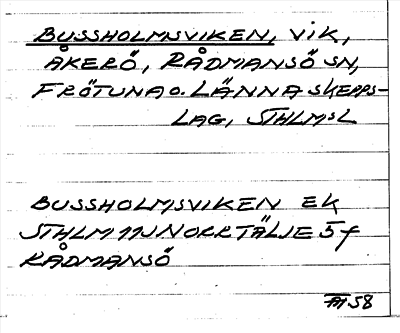 BUSSHOLMSVIKEN, VIK,
ÅKERÖ, RÅDMANSÖ SN,
FRÖTUNA O. LÄNNA SKEPPS-
LAG, STHLMS L
BUSSHOLMSVIKEN EK
STHLM 11J NORRTÄLJE 5f
RÅDMANSÖ
58